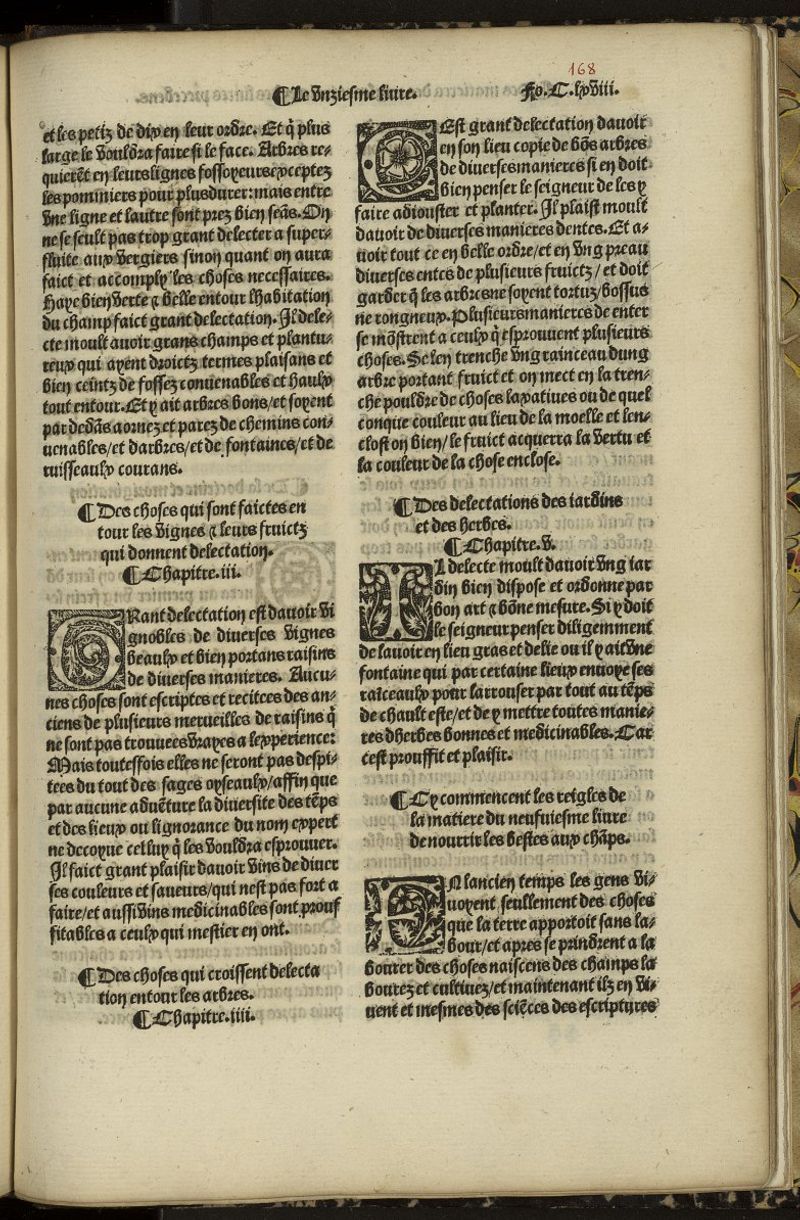 168
¶Le vnziesme liure. Fo.C.lxviii.
et les petiz de dix en leur ordre. Et q̃ plus
large le vouldra faire si le face. Arbres re-
quierẽt en leurs lignes fossoyeurs exceptez
les pommiers pour plus durer: mais entre
vne ligne et lautre sont prez bien seãs. On
ne se seult pas trop grant delecter a super-
fluite aux vergiers sinon quant on aura
faict et accomply les choses necessaires.
Haye bien verte ⁊ belle entour lhabitation
du champ faict grant delectation. Il dele-
cte moult auoir grans champs et plantu-
reux qui ayent droictz termes plaisans et
bien ceintz de fossez conuenables et haulx
tout entour. Et y ait arbres bons/et soyent
par dedãs aornez et parez de chemins con-
uenables/et darbres/et de fontaines/et de
ruisseaulx courans.
¶Des choses qui sont faictes en
tour les vignes ⁊ leurs fruictz
qui donnent delectation.
¶Chapitre.iii.
GRant delectation est dauoir vi
gnobles de diuerses vignes
beaulx et bien portans raisins
de diuerses manieres. Aucu-
nes choses sont escriptes et recitees des an-
ciens de plusieurs merueilles de raisins q̃
ne sont pas trouuees vrayes a lexperience:
Mais toutessois elles ne seront pas despi-
tees du tout des sages oyseaulx/affin que
par aucune aduẽture la diuersite des tẽps
et des lieux ou lignorance du nom expert
ne decoyue celluy q̃ les vouldra esprouuer.
Il faict grant plaisir dauoir vins de diuer
ses couleurs et saueurs/qui nest pas fort a
faire/et aussi vins medicinables sont prouf
fitables a ceulx qui mestier en ont.
¶Des choses qui croissent delecta
tion entour les arbres.
¶Chapitre.iiii.
CEst grant delectation dauoir
en son lieu copie de bõs arbres
de diuerses manieres si en doit
bien penser le seigneur de les y
faire adiouster et planter. Il plaist moult
dauoir de diuerses manieres dentes. Et a-
uoir tout ce en belle ordre/et en vng preau
diuerses entes de plusieurs fruictz/et doit
garder q̃ les arbres ne soyent tortuz/bossus
ne rongneux. Plusieurs manieres de enter
se mõstrent a ceulx q̃ esprouuent plusieurs
choses. Se len trenche vng rainceau dung
arbre portant fruict et on mect en la tren-
che pouldre de choses laxatiues ou de quel
conque couleur au lieu de la moelle et len-
clost on bien/le fruict acquerra la vertu et
la couleur de la chose enclose.
¶Des delectations des iardins
et des herbes.
¶Chapitre.v.
IL delecte moult dauoir vng iar
din bien dispose et ordonne par
bon art ⁊ bõne mesure. Si y doit
le seigneur penser diligemment
de lauoir en lieu gras et delie ou il y ait vne
fontaine qui par certains lieux enuoye ses
raiceaulx pour larrouser par tout au tẽps
de chault este/et de y mettre toutes manie-
res dherbes bonnes et medicinables. Car
cest prouffit et plaisir.
¶Cy commencent les reigles de
la matiere du neufuiesme liure
de nourrir les bestes aux chãps.
EN lancien temps les gens vi-
uoyent seullement des choses
que la terre apportoit sans la-
bour/et apres se prindrent a la
bourer des choses naiscens des champs la
bourez et cultiuez/et maintenant ilz en vi-
uent et mesmes des sciẽces des escriptures